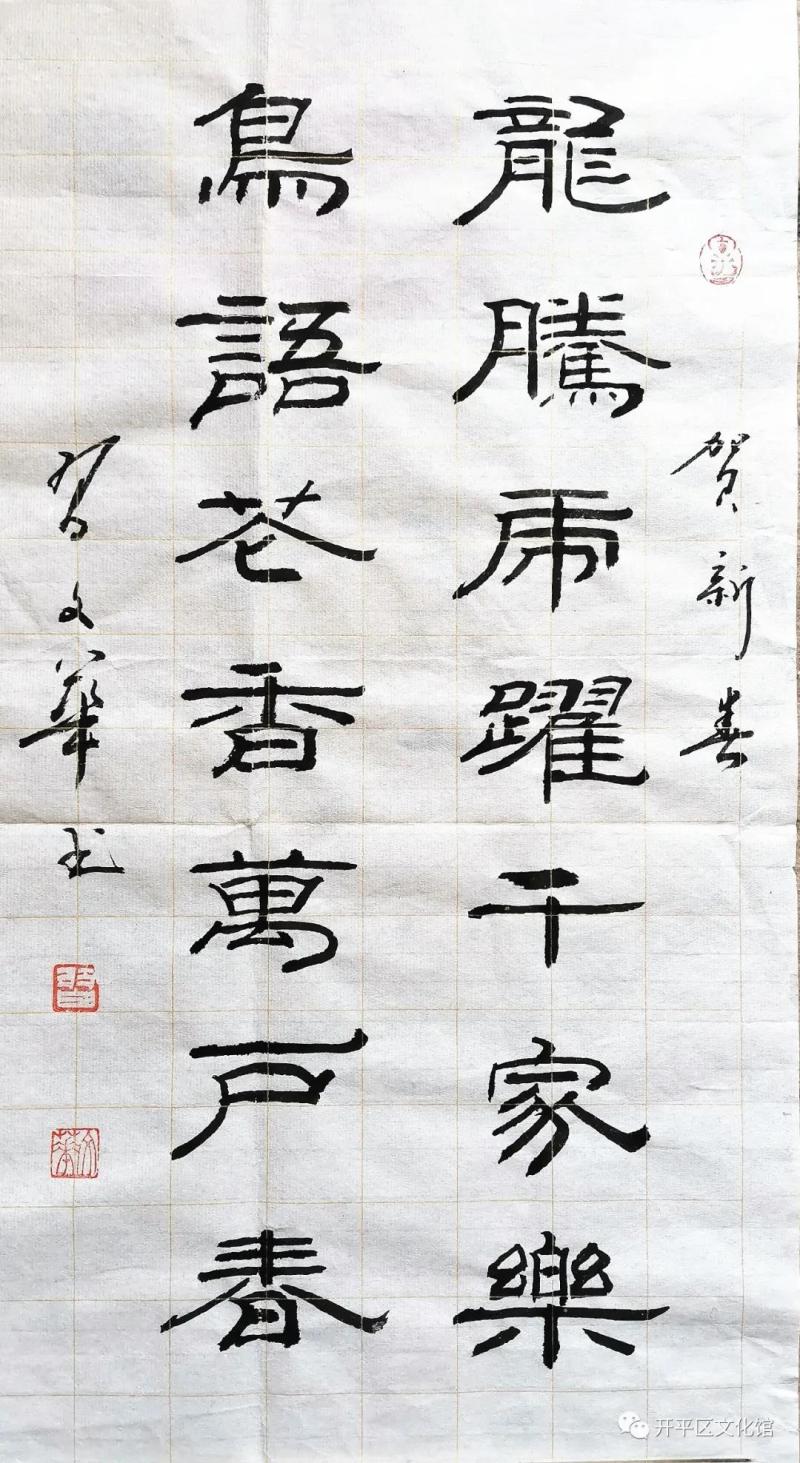 賀新春
龍騰虎躍千家樂
鳥語花香萬戶春
習文華书
開平区文化馆